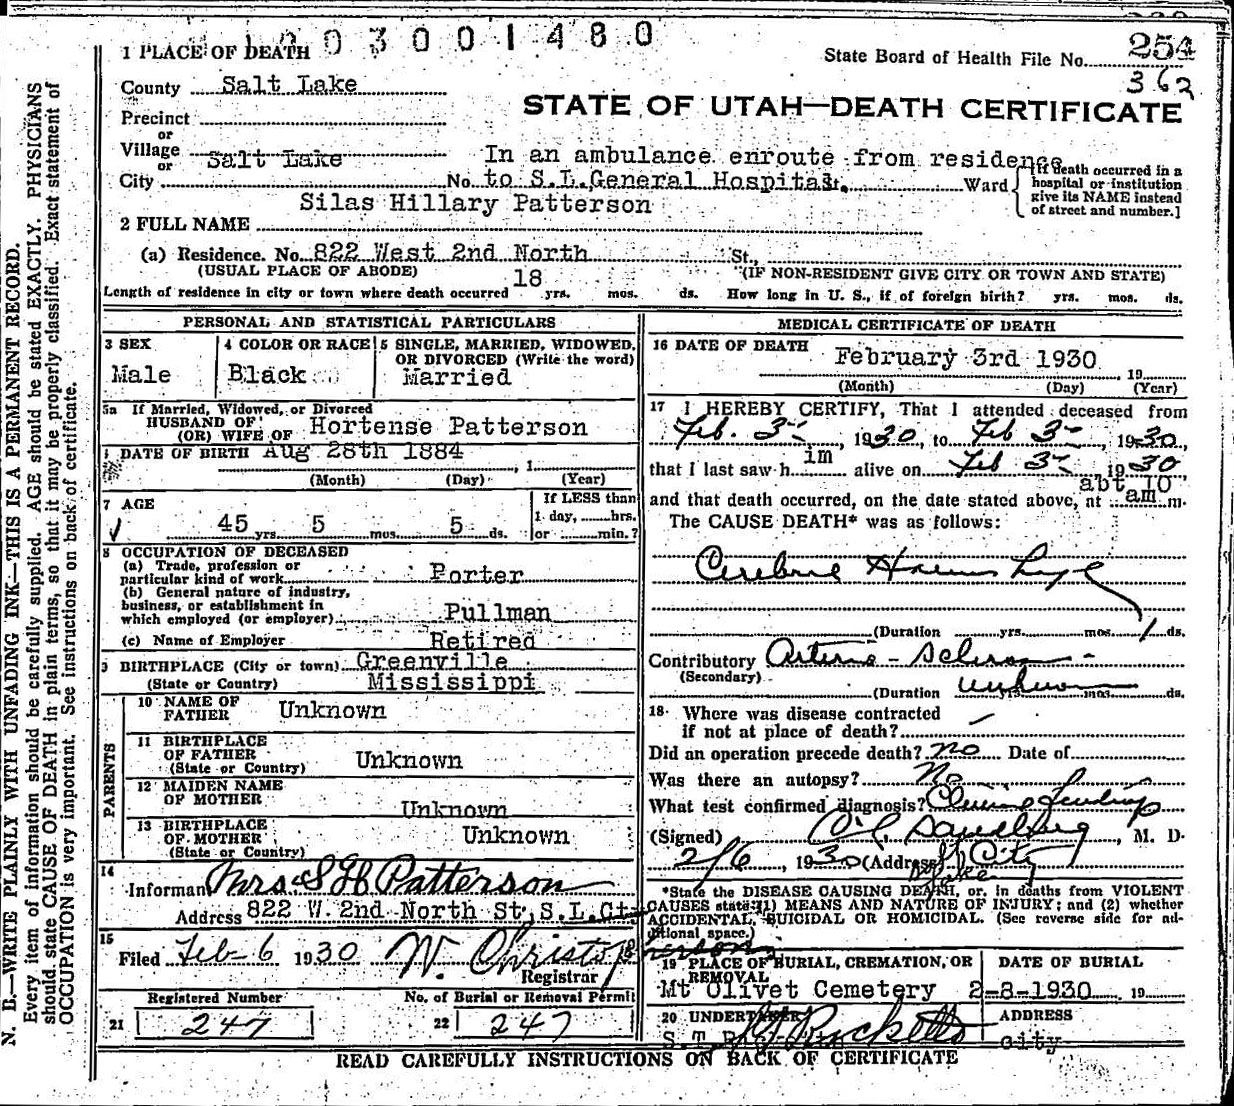 1003001480
1 PLACE OF DEATH
State Board of Health File No. 254
362
County Salt Lake
STATE OF UTAH—DEATH CERTIFICATE
Precinct
or
Village
or Salt Lake
In an ambulance enroute from residence
City No. to S.L.General Hospital St., Ward
[If death occurred in a
hospital or institution
give its NAME instead
of street and number.]
Silas Hillary Patterson
2 FULL NAME
(a) Residence. No. 822 West 2nd North St.,
(USUAL PLACE OF ABODE)
(IF NON-RESIDENT GIVE CITY OR TOWN AND STATE)
Length of residence in city or town where death occurred 18 yrs. mos. ds. How long in U. S., if of foreign birth? yrs. mos. ds.
PERSONAL AND STATISTICAL PARTICULARS
3 SEX
Male
4 COLOR OR RACE
Black
5 SINGLE, MARRIED, WIDOWED,
OR DIVORCED (Write the word)
Married
5a If Married, Widowed, or Divorced
HUSBAND OF
(OR) WIFE OF Hortense Patterson
DATE OF BIRTH Aug 28th 1884 , 1
(Month) (Day) (Year)
7 AGE
45 yrs. 5 mos. 5 ds.
If LESS than
1 day, hrs.
or min.?
8 OCCUPATION OF DECEASED
(a) Trade, profession or
particular kind of work Porter
(b) General nature of industry,
business, or establishment in
which employed (or employer) Pullman
(c) Name of Employer Retired
9 BIRTHPLACE (City or town) Greenville
(State or Country) Mississippi
PARENTS
10 NAME OF
FATHER Unknown
11 BIRTHPLACE
OF FATHER
(State or Country) Unknown
12 MAIDEN NAME
OF MOTHER Unknown
13 BIRTHPLACE
OF MOTHER
(State or Country) Unknown
14
Informant Mrs S H Patterson
Address 822 W. 2nd North St, S.L.Cty
15
Filed Feb-6 1930 W. Christopherson
Registrar
Registered Number
21 247
No. of Burial or Removal Permit
22 247
MEDICAL CERTIFICATE OF DEATH
16 DATE OF DEATH
February 3rd 1930 , 19
(Month) (Day) (Year)
17 I HEREBY CERTIFY, That I attended deceased from
Feb. 3 , 1930, to Feb 3 , 1930,
that I last saw him alive on Feb 3 1930
and that death occurred, on the date stated above, at abt 10 am m.
The CAUSE DEATH* was as follows:
Cerebral Hemorrhage
(Duration yrs. mos. 1 ds.
Contributory Arterio-Sclerosis
(Secondary)
(Duration unknown yrs. mos. ds.
18 Where was disease contracted
if not at place of death?
Did an operation precede death? no Date of
Was there an autopsy? No
What test confirmed diagnosis? Clinical findings
(Signed) Sandberg, M. D.
2/6, 1930 (Address) City
*State the DISEASE CAUSING DEATH, or, in deaths from VIOLENT
CAUSES state (1) MEANS AND NATURE OF INJURY; and (2) whether
ACCIDENTAL, SUICIDAL OR HOMICIDAL. (See reverse side for ad-
ditional space.)
19 PLACE OF BURIAL, CREMATION, OR
REMOVAL
Mt Olivet Cemetery
DATE OF BURIAL
2-8-1930 19
20 UNDERTAKER
S.T. Ricketts
ADDRESS
city
READ CAREFULLY INSTRUCTIONS ON BACK OF CERTIFICATE
N. B.—WRITE PLAINLY WITH UNFADING INK—THIS IS A PERMANENT RECORD.
Every item of information should be carefully supplied. AGE should be stated EXACTLY. PHYSICIANS
should state CAUSE OF DEATH in plain terms, so that it may be properly classified. Exact statement of
OCCUPATION is very important. See instructions on back of certificate.